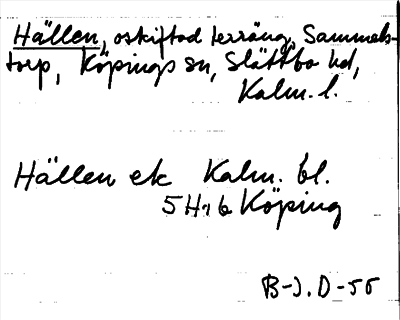 Hällen, oskiftad terräng, Sammels-
torp, Köpings sn, Slättbo hd,
Kalm. l.
Hällen ek Kalm. bl.
5 H:16 Köping
B-J. D-55